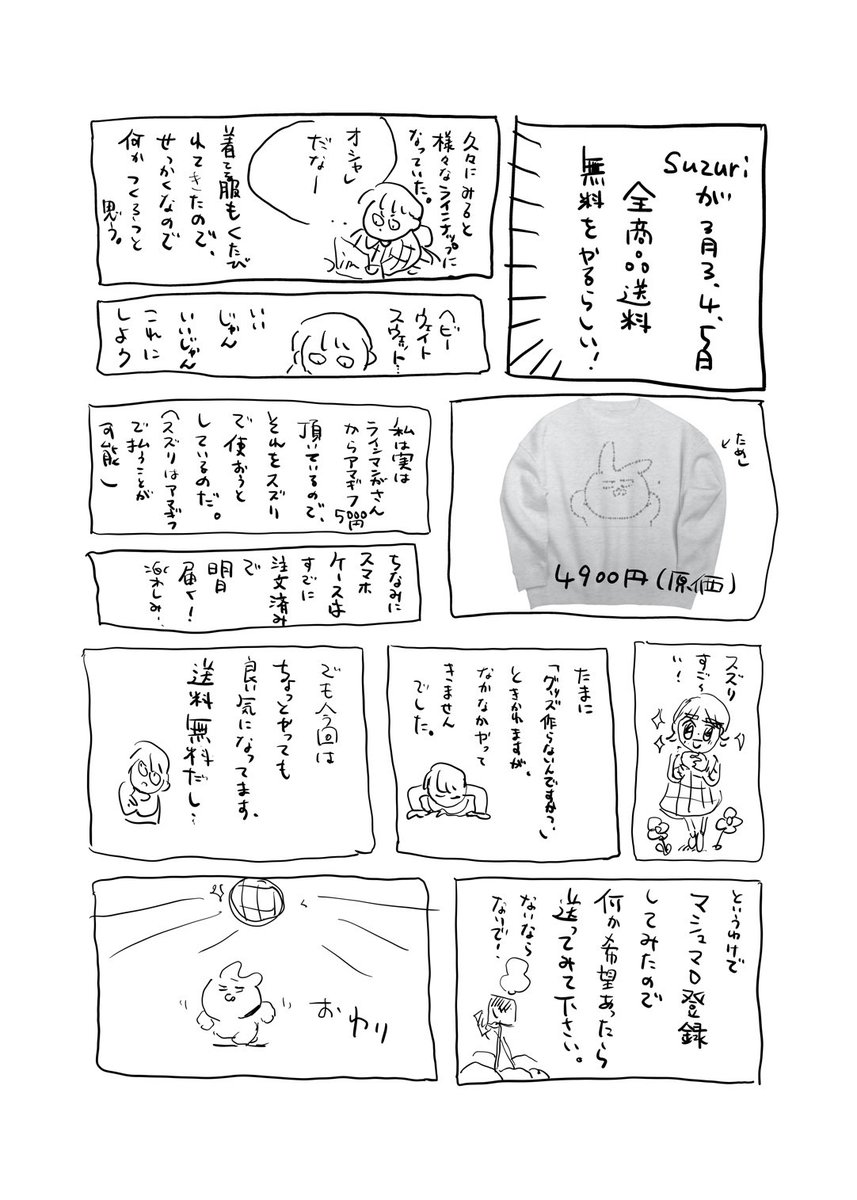 suzuriが3月3、4、5日
全商品送料
無料をやるらしい!
久々にみると
様々なラインナップに
なっていた。
オシャレ
だなー
着てる服もくたび
れてきたので、
せっかくなので
何かつくろうと
思う。
ヘビー
ウェイト
スウェット…
いい
じゃん
いいじゃん
これに
しよう
ため
4900円(原価)
私は実は
ラインマンガさん
からアマギフ5000円
頂いているので、
それをスズリ
で使おうと
しているのだ。
(スズリはアマギフ
で払うことが
可能)
ちなみに
スマホ
ケースは
すでに
注文済み
で
明日
届く!
楽しみ…
スズリ
すご〜
い!
たまに
「グッズ作らないんですか?」
ときかれますが、
なかなかやって
きません
でした。
でも今回は
ちょっとやっても
良い気になってます、
送料無料だし…
というわけで
マシュマロ登録
してみたので
何か希望あったら
送ってみて下さい。
ないなら
ないで!
おわり